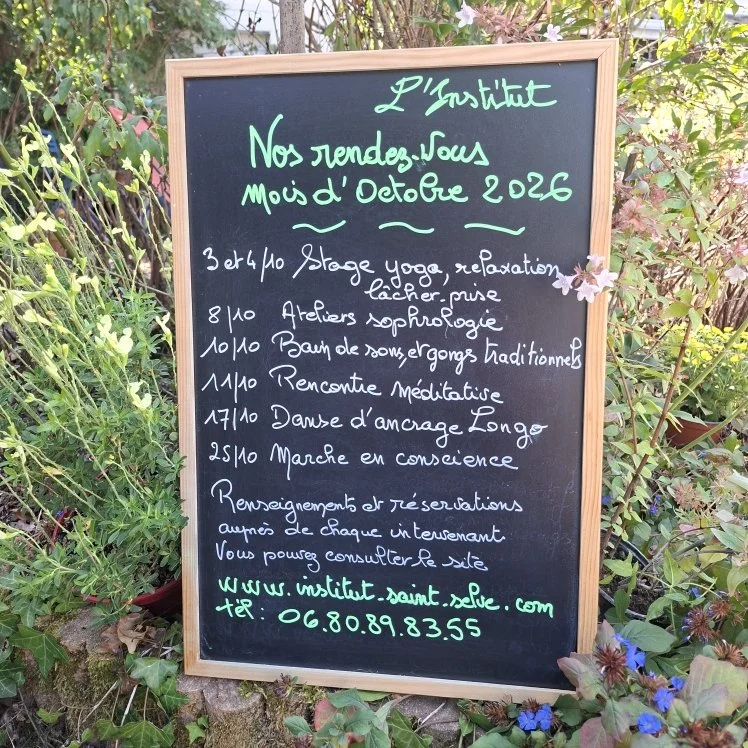 L'Institut
Nos rendez-vous
Mois d'Octobre 2026
3 et 4/10 Stage yoga, relaxation,
lâcher-prise
8/10 Ateliers sophrologie
10/10 Bain de sons, et gongs traditionnels
11/10 Rencontre Méditative
17/10 Danse d'ancrage Longo
25/10 Marche en conscience
Renseignements et réservations
auprès de chaque intervenant
Vous pouvez consulter le site
www.institut-saint-selve.com
tél : 06.80.89.83.55